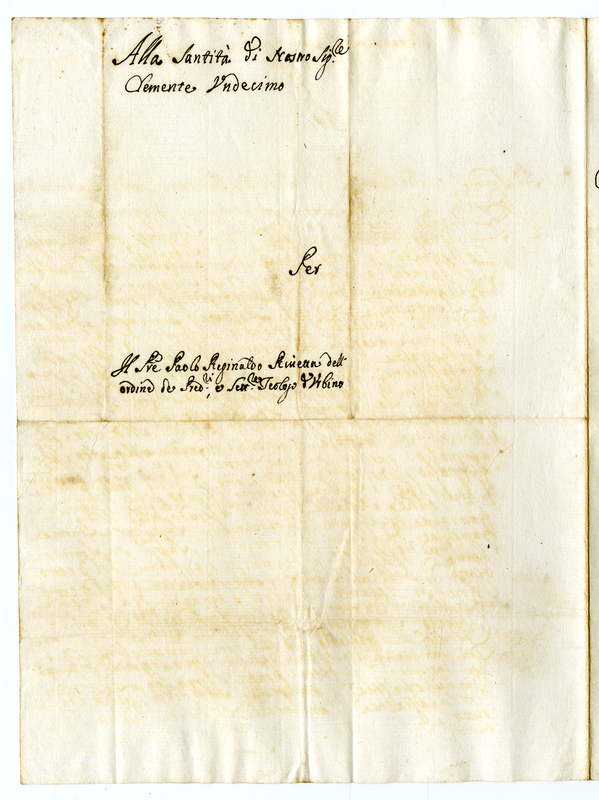 Alla Santità di Nostro Sig.re
Clemente Undecimo
Per
Il Pre Paolo Reginaldo Riviera dell'
ordine de Pred.ri, e Lett.re Teologo d'Urbino